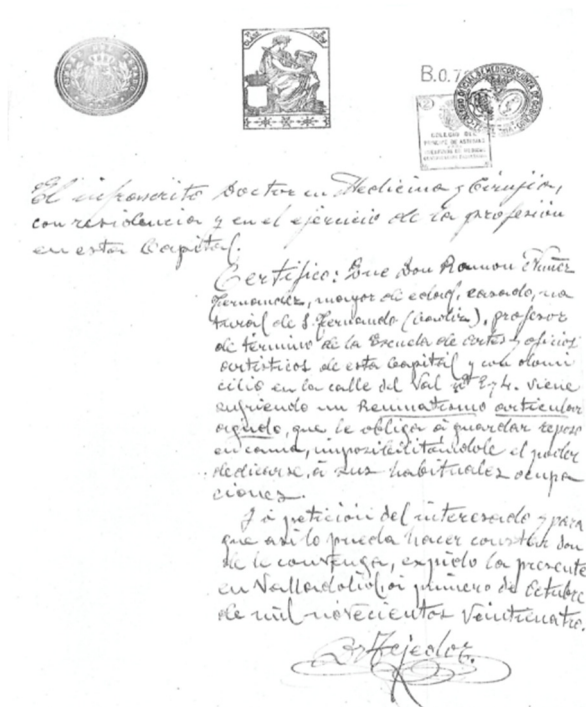 B.0.7
COLEGIO DEL
PRÍNCIPE DE ASTURIAS
El infrascrito Doctor en Medicina y Cirujía,
con residencia y en el ejercicio de la profesión
en esta Capital.
Certifico: Que Don Ramon Nuñez
Fernandez, mayor de edad, casado, na
tural de S. Fernando (Cadiz), profesor
de término de la Escuela de Artes y oficios
artísticos de esta Capital y con domi
cilio en la calle del Val nº 2 y 4. viene
sufriendo un Reumatismo articular
agudo, que le obliga á guardar reposo
en cama, imposibilitándole el poder
dedicarse, á sus habituales ocupa
ciones.
Y á petición del interesado y para
que asi lo pueda hacer constar don
de le convenga, expido la presente
en Valladolid, á primero de Octubre
de mil novecientos veinticuatro.
Tejedor.